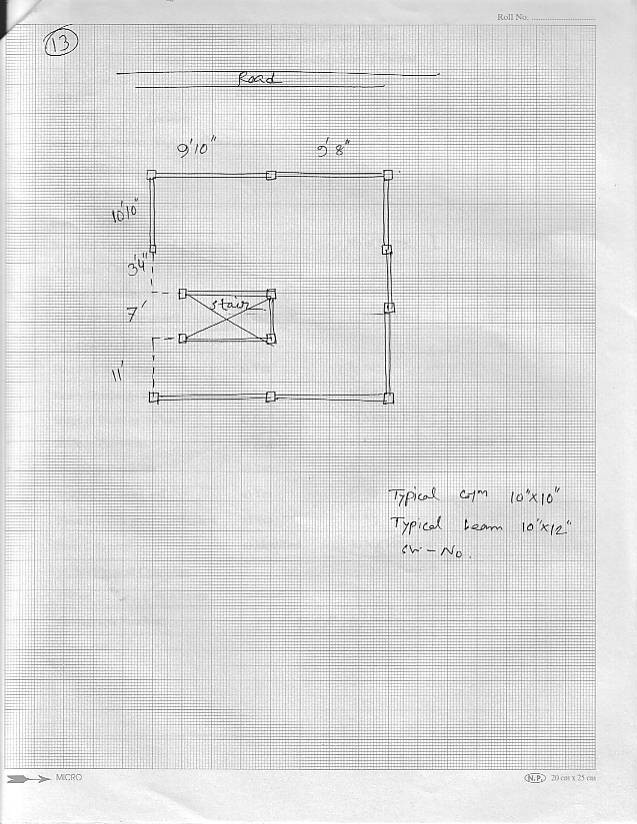 Roll No. ........................
13
Road
9'10"
9'8"
10'10"
3'4"
7'
stair
11'
Typical colm 10"x10"
Typical beam 10"x12"
No.
MICRO
N.P. 20 cm x 25 cm